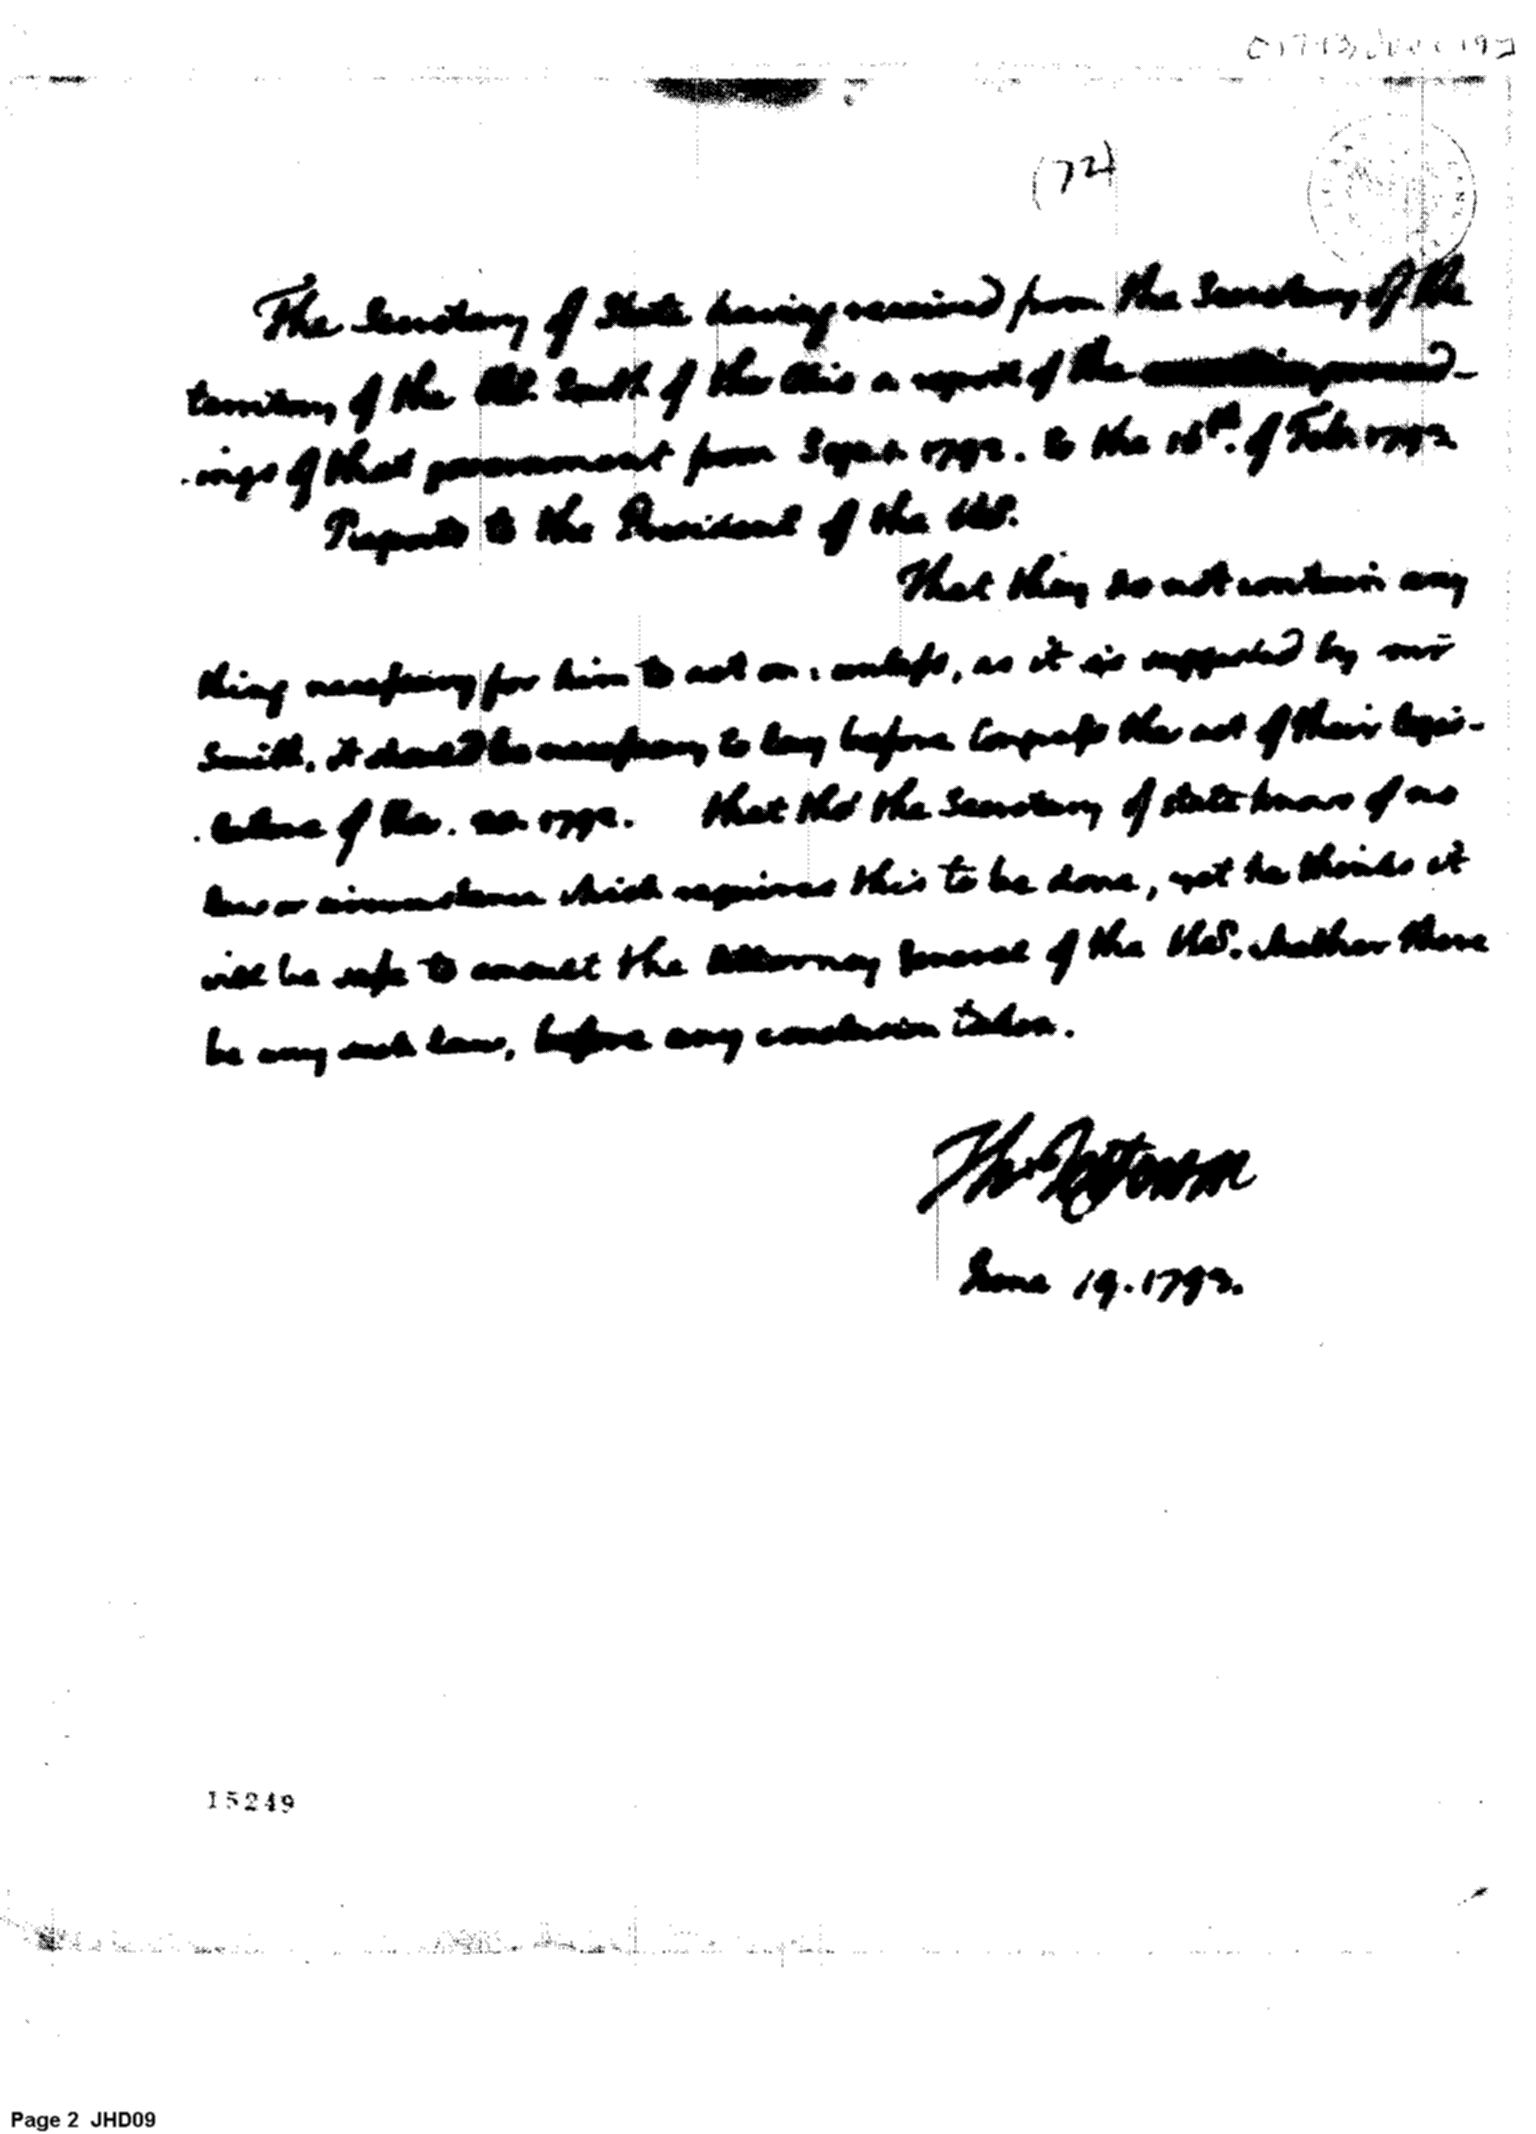 (72)
The Secretary of State having received from the Secretary of the
territory of the US. South of the Ohio a report of the proceed-
ings of that government from Sept. 1792. to the of Feb. 1793
Reports to the President of the US.
That they do not contain any
thing necessary for him to act on: unless, as it is suggested by mr
Smith, it should be necessary to lay before Congress the act of their legis-
lature of Nov. 20. 1792. that tho' the Secretary of state knows of no
law or circumstance which requires this to be done, yet he thinks it
will be safe to consult the Attorney General of the US. whether there
be any such law, before any conclusion taken.
Th: Jefferson
June 19. 1793.
15249
Page 2 JHD09